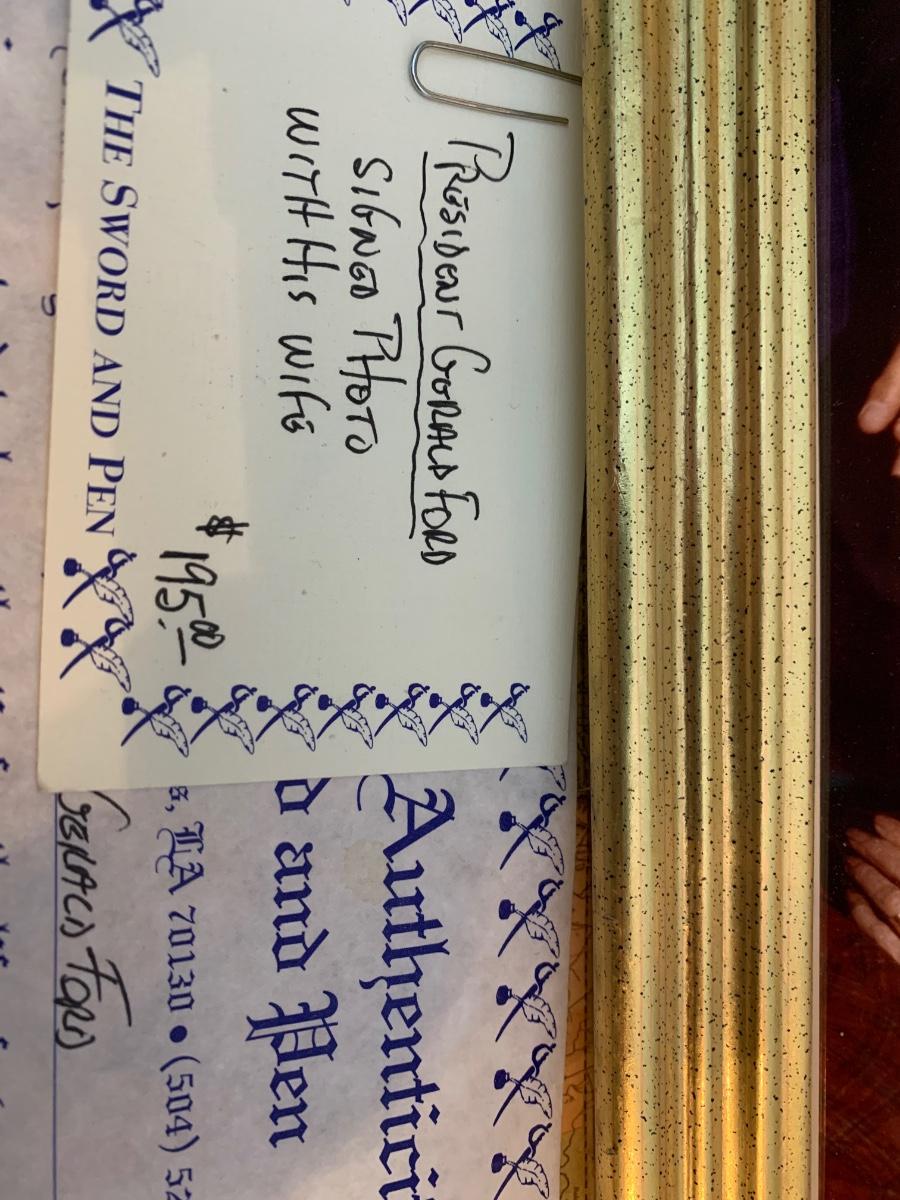 PRESIDENT GERALD FORD
SIGNED PHOTO
WITH HIS WIFE
$195.00
THE SWORD AND PEN
Authentici
d and Pen
s, LA 70130 • (504) 52
GERALD FORD